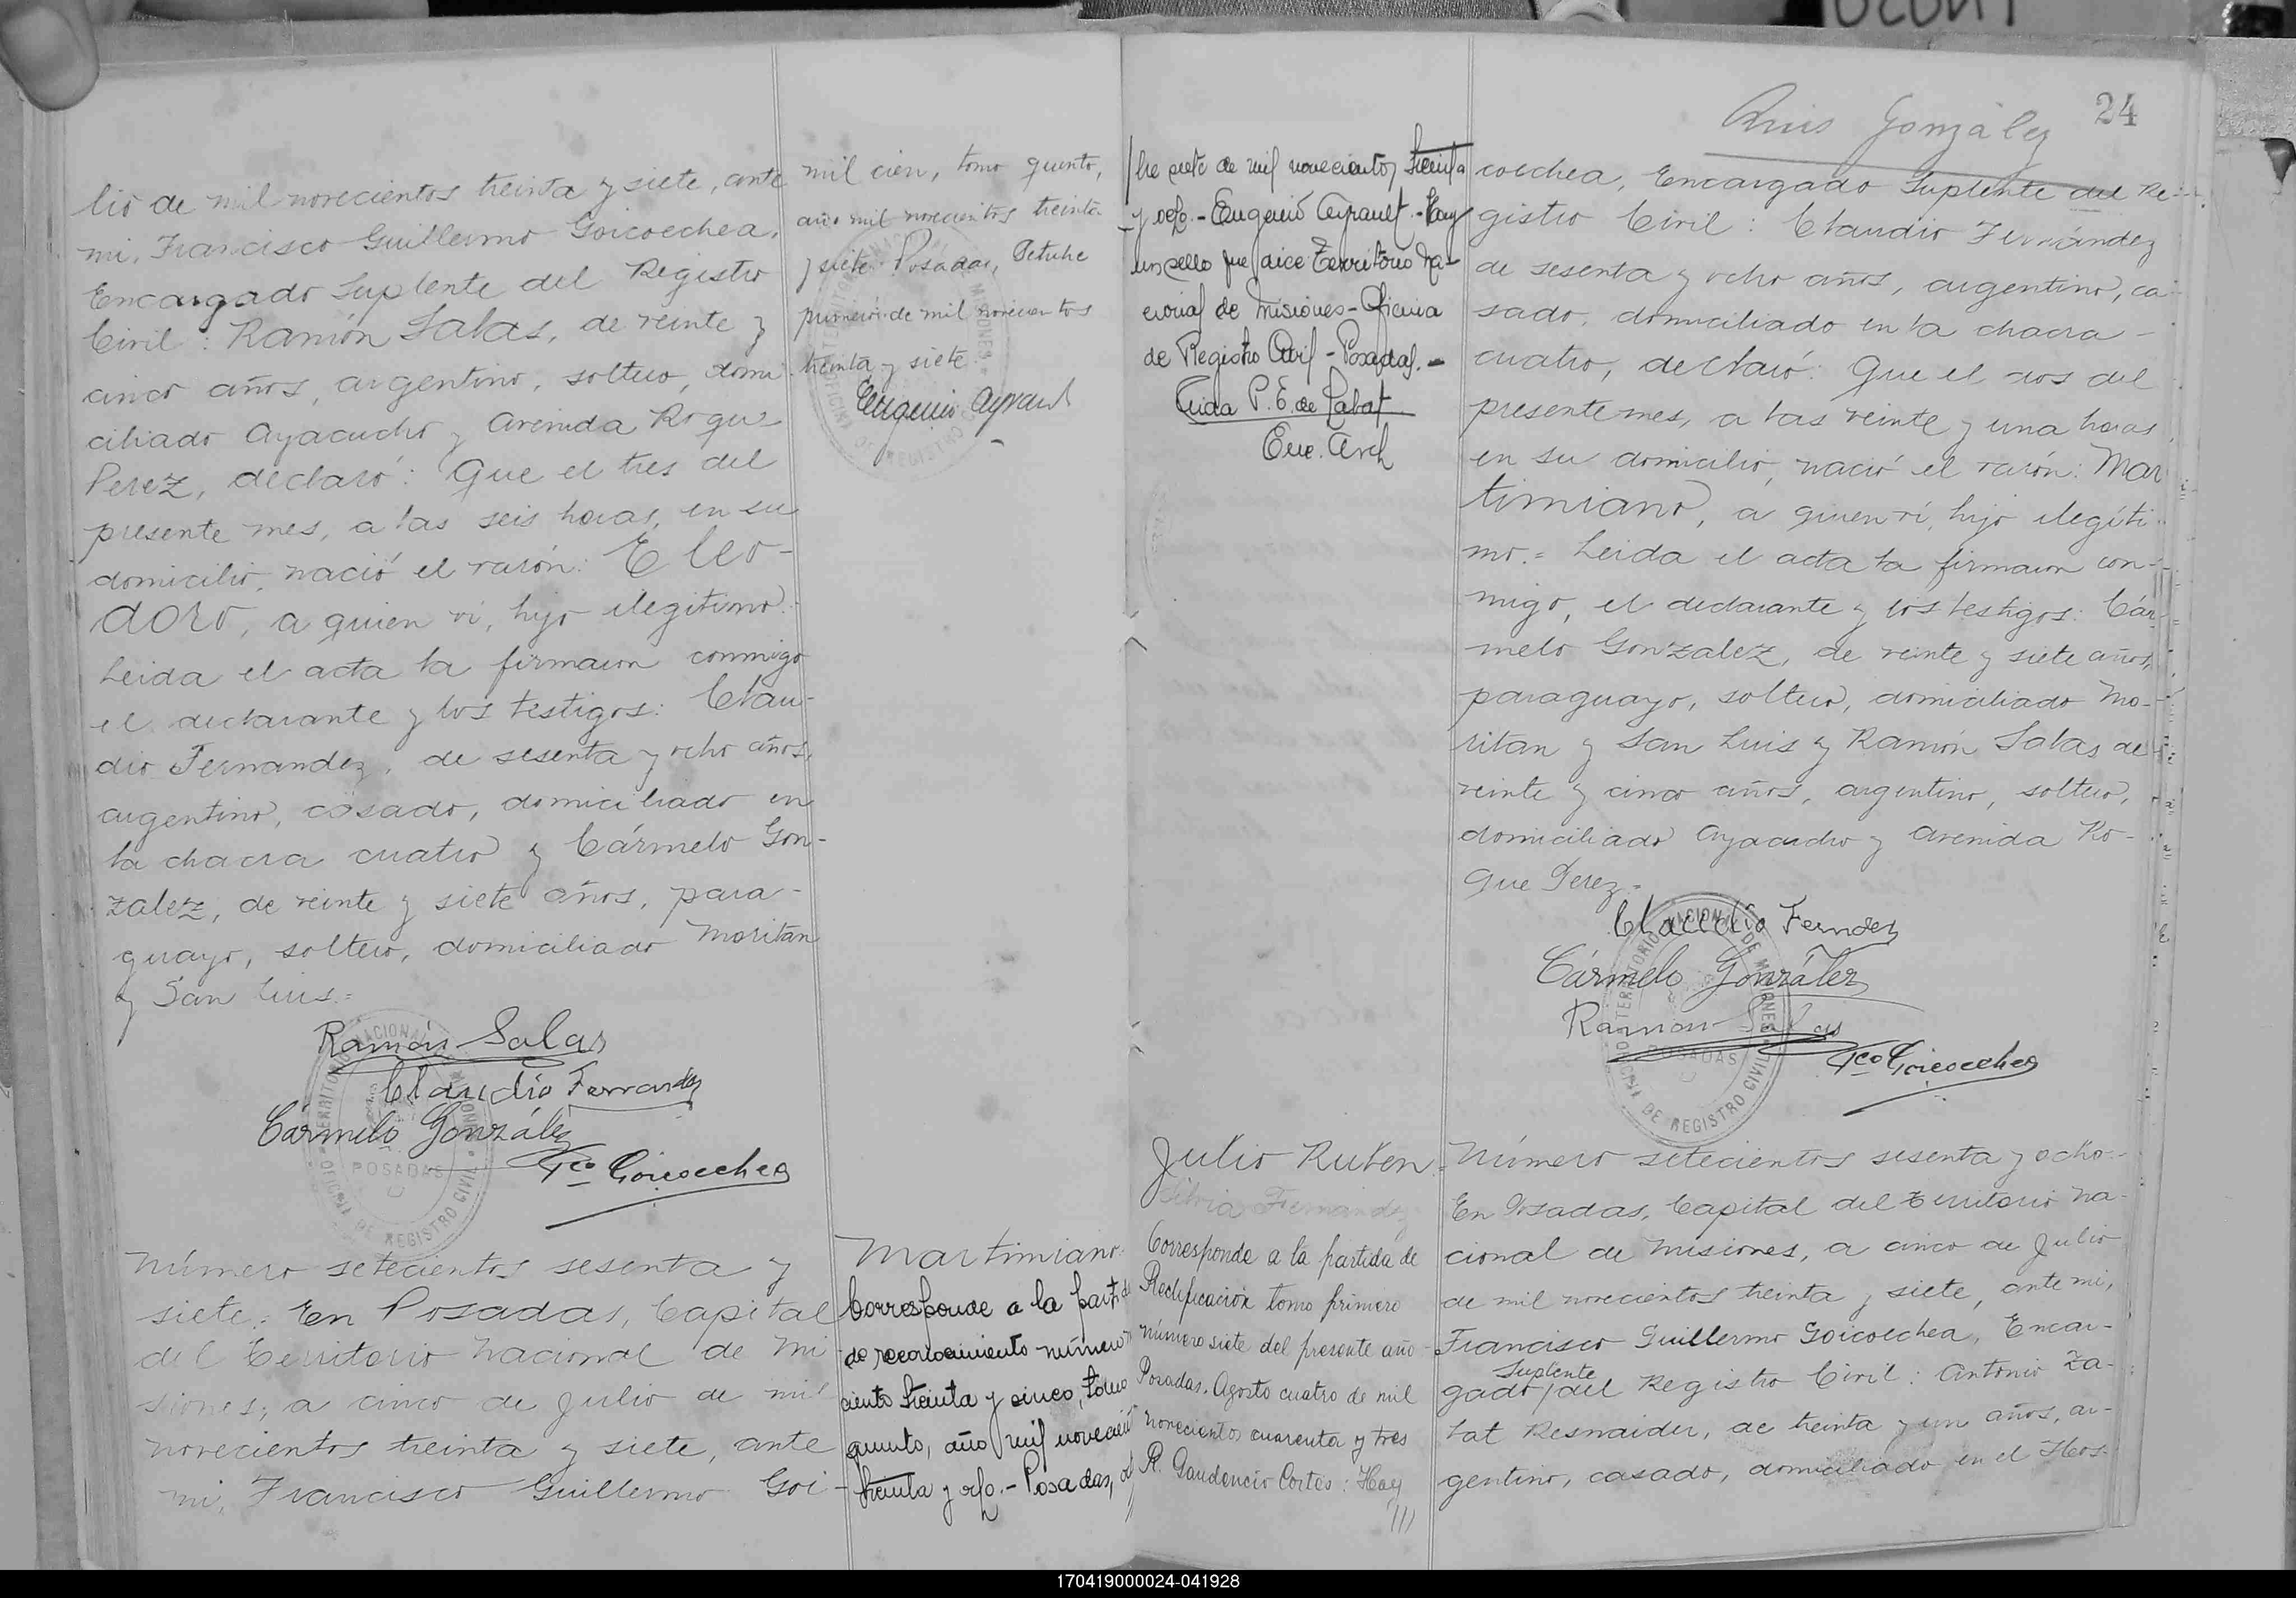 lio de mil novecientos treinta y siete, ante
mi, Francisco Guillermo Goicoechea,
Encargado Suplente del Registro
Civil: Ramón Salas, de veinte y
cinco años, argentino, soltero, domi-
ciliado Ayacucho y Avenida Roque
Perez, declaró: Que el tres del
presente mes, a las seis horas, en su
domicilio, nació el varón: Eleo-
doro, a quien vi, hijo ilegítimo.
Leida el acta la firmaron conmigo
el declarante y los testigos: Clau-
dio Fernandez, de sesenta y ocho años,
argentino, casado, domiciliado en
la chacra cuatro y Cármelo Gon-
zalez, de veinte y siete años, para-
guayo, soltero, domiciliado Moritan
y San Luis.=
Ramón Salas
Claudio Fernandez
Cármelo González
Fco Goicoechea
TERRITORIO NACIONAL DE MISIONES
OFICINA DE REGISTRO CIVIL
POSADAS
Número setecientos sesenta y
siete: En Posadas, Capital
del Territorio Nacional de Mi-
siones, a cinco de Julio de mil
novecientos treinta y siete, ante
mi, Francisco Guillermo Goi-
mil cien, tomo quinto,
año mil novecientos treinta
y siete. Posadas, Octubre
primero de mil novecientos
treinta y siete
Eugenio Ayrault
Martimiano.
Corresponde a la part. de
de reconocimiento número
ciento treinta y cinco, tomo
quinto, año mil novecien
treinta y ocho.- Posadas,
bre siete de mil novecientos treinta
y ocho.- Eugenio Ayrault.- Hay
un sello que dice Territorio Na-
cional de Misiones - Oficina
de Registro Civil - Posadas.-
P. E. de Labat
Enc. Arch
Julio Ruben.
Silvia Fernandez
Corresponde a la partida de
Rectificación tomo primero
número siete del presente año
Posadas, Agosto cuatro de mil
novecientos cuarenta y tres
R. Gaudencio Cortes: Hay
///
Luis González
24
coechea, Encargado Suplente del Re-
gistro Civil: Claudio Fernández
de sesenta y ocho años, argentino, ca-
sado, domiciliado en la chacra
cuatro, declaró: Que el dos del
presente mes, a las veinte y una horas
en su domicilio, nació el varón: Mar
timiano, a quien vi, hijo ilegíti-
mo.= Leida el acta la firmaron con-
migo, el declarante y los testigos: Cár-
melo Gonzalez, de veinte y siete años,
paraguayo, soltero, domiciliado Mo-
ritan y San Luis y Ramón Salas de
veinte y cinco años, argentino, soltero,
domiciliado Ayacucho y Avenida Ro-
que Perez.=
Claudio Fernandez
Cármelo González
Ramón Salas
Fco Goicoechea
TERRITORIO NACIONAL DE MISIONES
OFICINA DE REGISTRO CIVIL
POSADAS
Número setecientos sesenta y ocho.-
En Posadas, Capital del Territorio Na-
cional de Misiones, a cinco de Julio
de mil novecientos treinta y siete, ante mi,
Francisco Guillermo Goicoechea, Encar-
Suplente
gado / del Registro Civil: Antonio Za-
lat Resnaider, de treinta y un años, ar-
gentino, casado, domiciliado en el Hos-
170419000024-041928